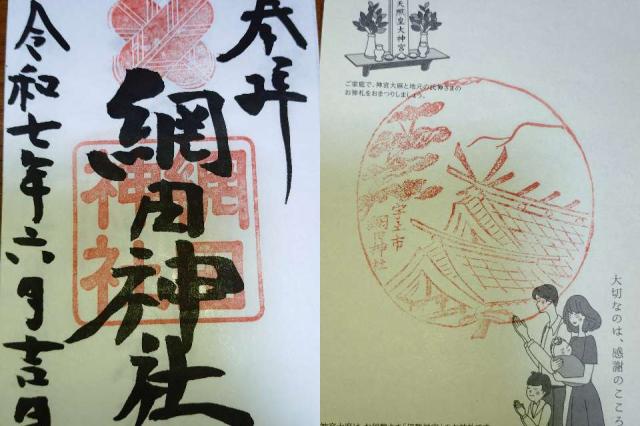 奉拝
網田神社
令和七年六月吉日
網田
神社
天照皇大神宮
ご家庭で、神宮大麻と地元の氏神さまの
お神札をおまつりしましょう。
宇土市
網田神社
大切なのは、感謝のこころ